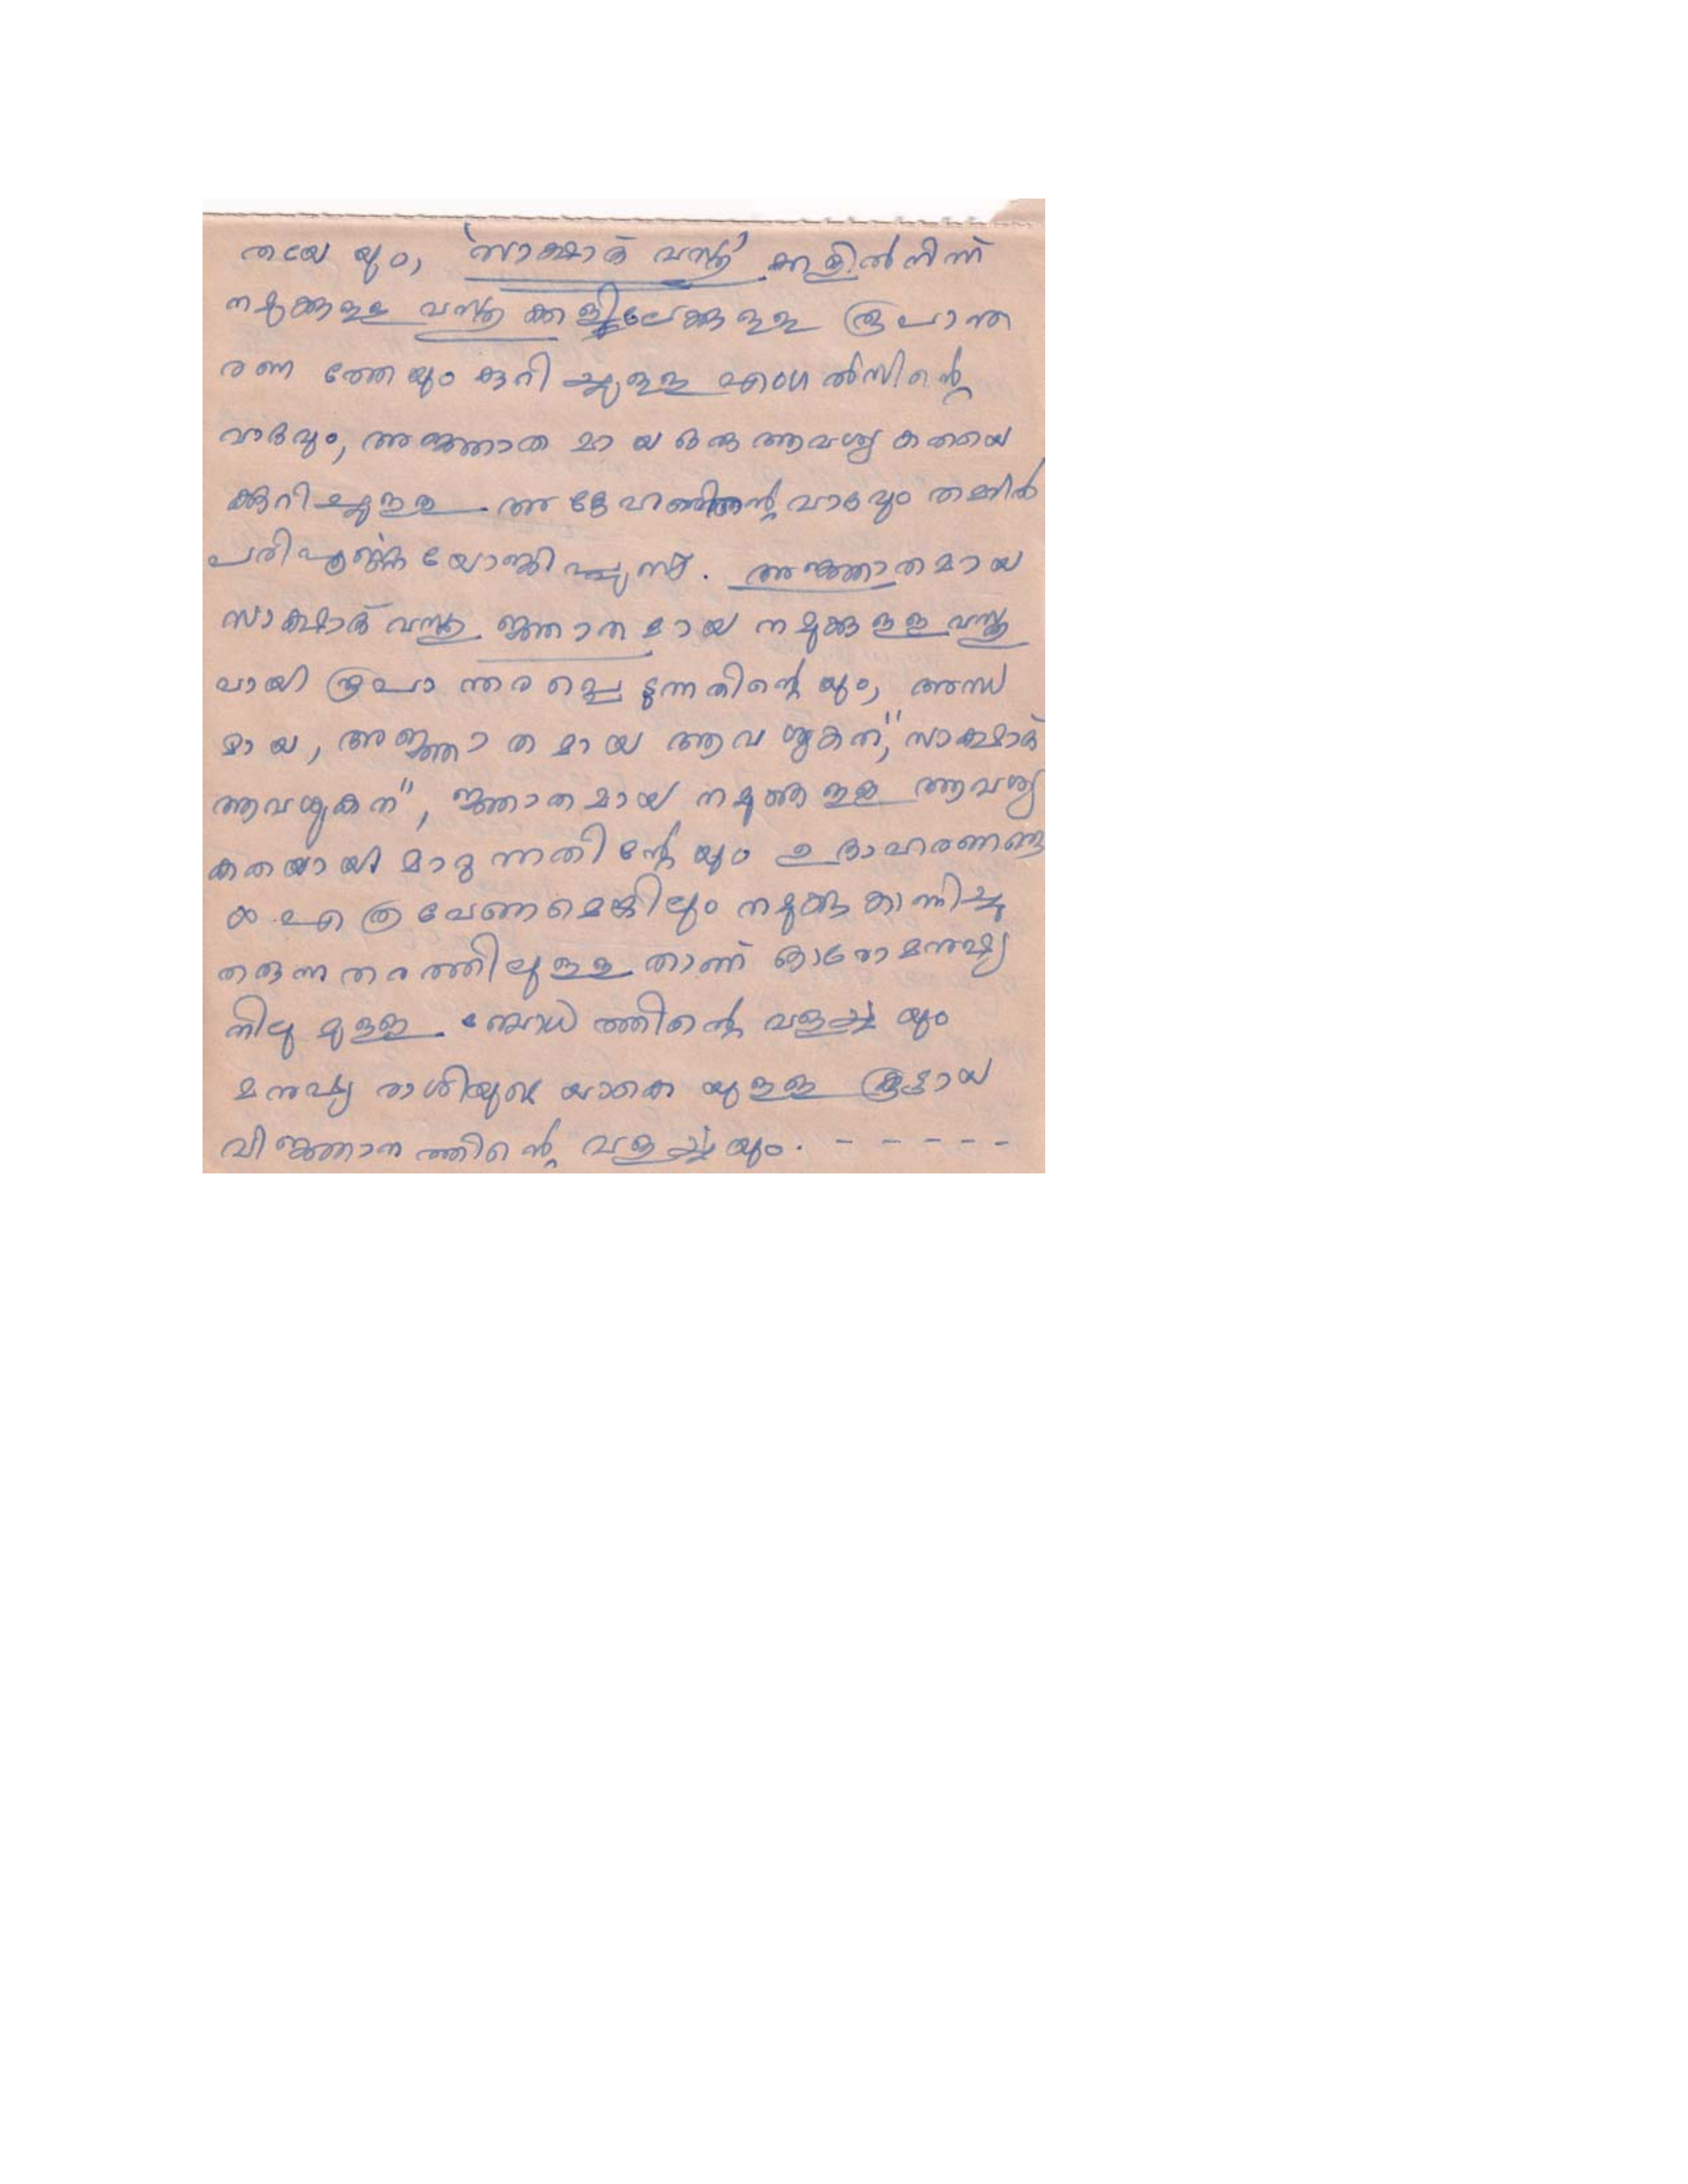 തയേയും, 'സാക്ഷാത് വസ്തു' ക്കളിൽനിന്ന്
നമുക്കുള്ള വസ്തു ക്കളിലേക്കുള്ള രൂപാന്ത
രണ ത്തേയും കുറിച്ചുള്ള എംഗൽസിന്റെ
വാദവും, അജ്ഞാത മായ ഒരു ആവശ്യകതയെ
ക്കുറിച്ചുള്ള അദ്ദേഹത്തിന്റെ വാദവും തമ്മിൽ
പരിപൂർണ്ണ യോജിപ്പുണ്ട്. അജ്ഞാതമായ
സാക്ഷാത് വസ്തു ജ്ഞാതമായ നമുക്കുള്ള വസ്തു
വായി രൂപാന്തരപ്പെടുന്നതിന്റെയും, അന്ധ
മായ, അജ്ഞാതമായ ആവശ്യകത, "സാക്ഷാത്
ആവശ്യകത", ജ്ഞാതമായ നമുക്കുള്ള ആവശ്യ
കതയായി മാറുന്നതിന്റേയും ഉദാഹരണങ്ങ
ൾ എത്ര വേണമെങ്കിലും നമുക്കു കാണിച്ചു
തരുന്ന തരത്തിലുള്ളതാണ് ഓരോ മനുഷ്യ
നിലുമുള്ള ബോധത്തിന്റെ വളർച്ചയും
മനുഷ്യ രാശിയുടെ യാകെ യുള്ള കൂട്ടായ
വിജ്ഞാനത്തിന്റെ വളർച്ചയും. - - - - -